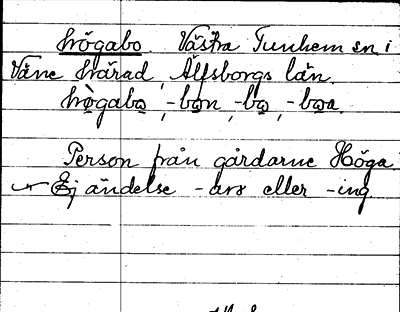 högabo. Västra Tunhem sn i
Väne härad, Älfsborgs län.
högabo, -bon, -bo, -boa.
Person från gårdarne Höga.
Ej ändelse -are eller -ing.